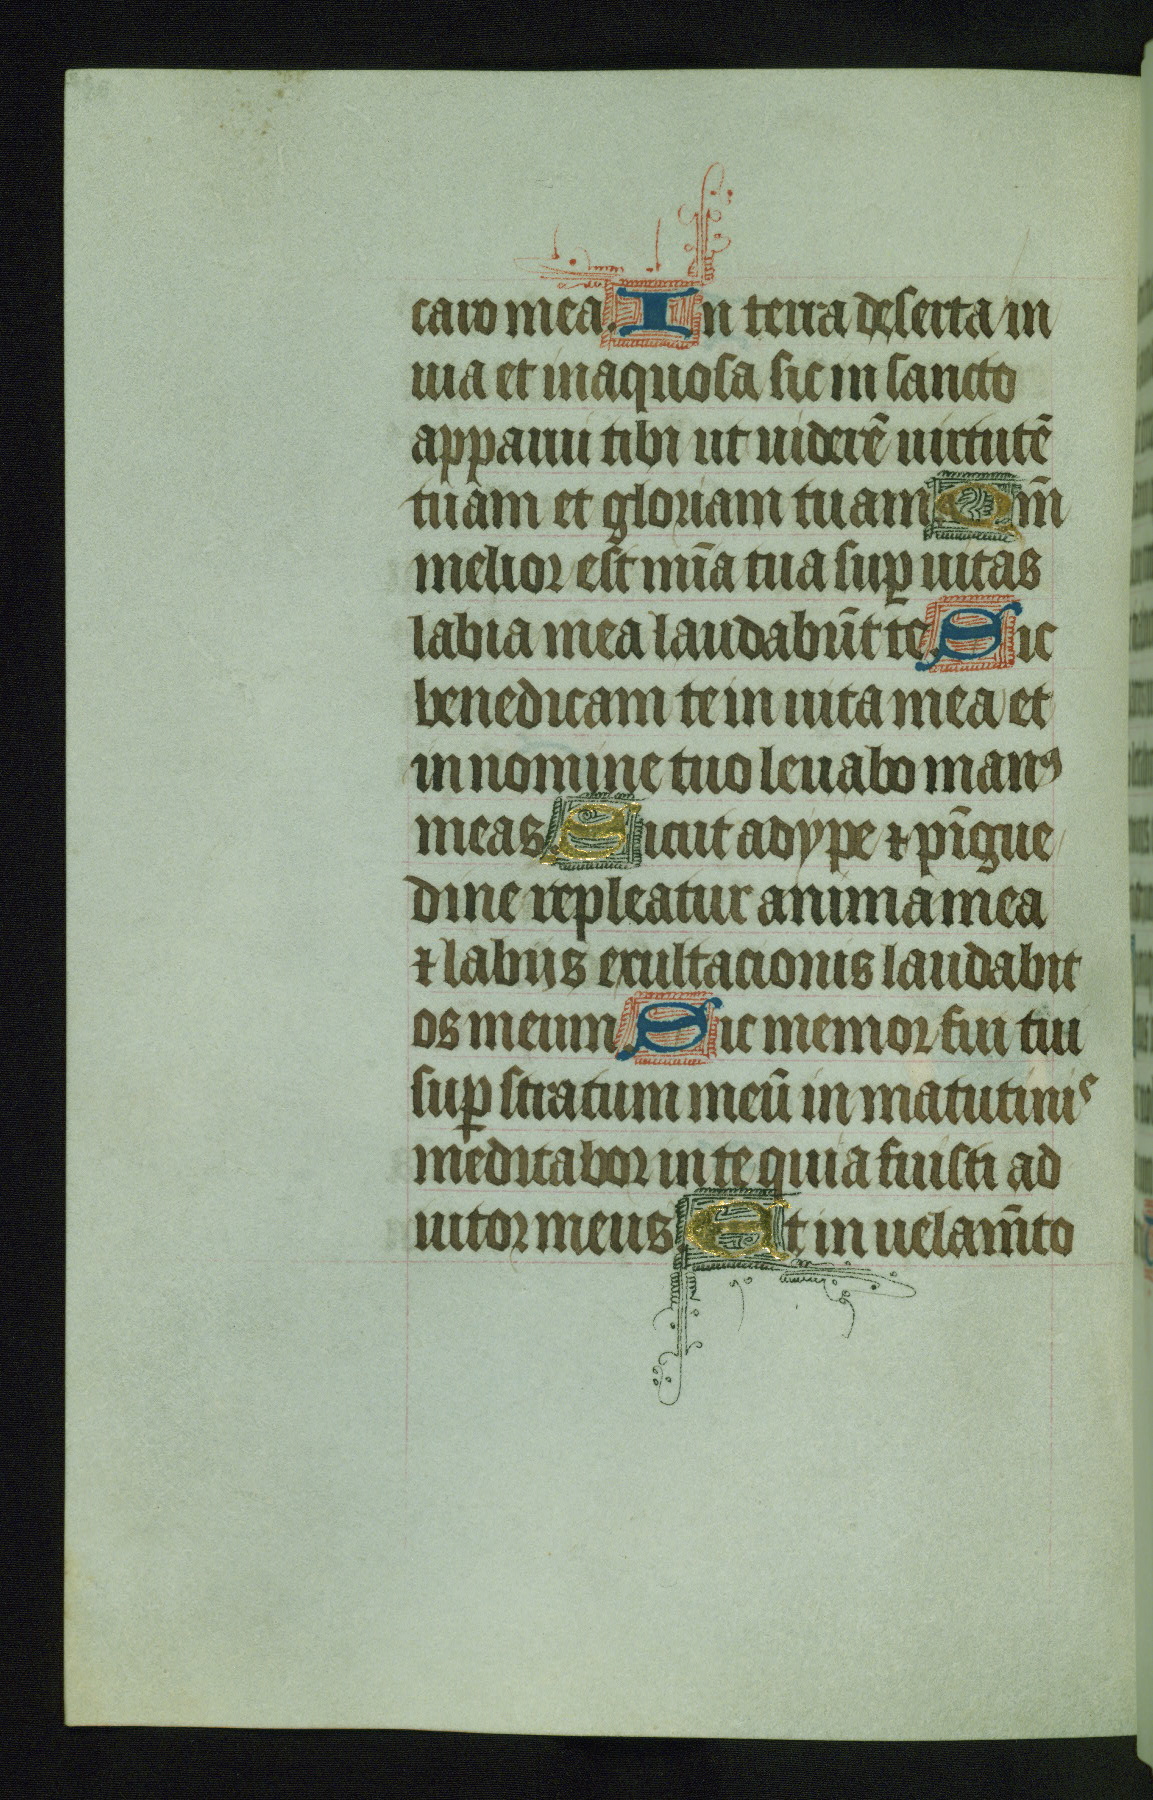 caro mea. In terra deserta in
uia et inaquosa sic in sancto
apparui tibi ut uiderē uirtutē
tuam et gloriam tuam. Qm̄
melior est mīa tua suꝑ uitas
labia mea laudabūt te. Sic
benedicam te in uita mea et
in nomine tuo leuabo manꝰ
meas. Sicut adype ⁊ pīgue
dine repleatur anima mea
⁊ labiis exultacionis laudabit
os meum. Sic memor fui tui
suꝑ stratum meū in matutinis
meditabor in te quia fuisti ad
iutor meus. Et in uelam̄to